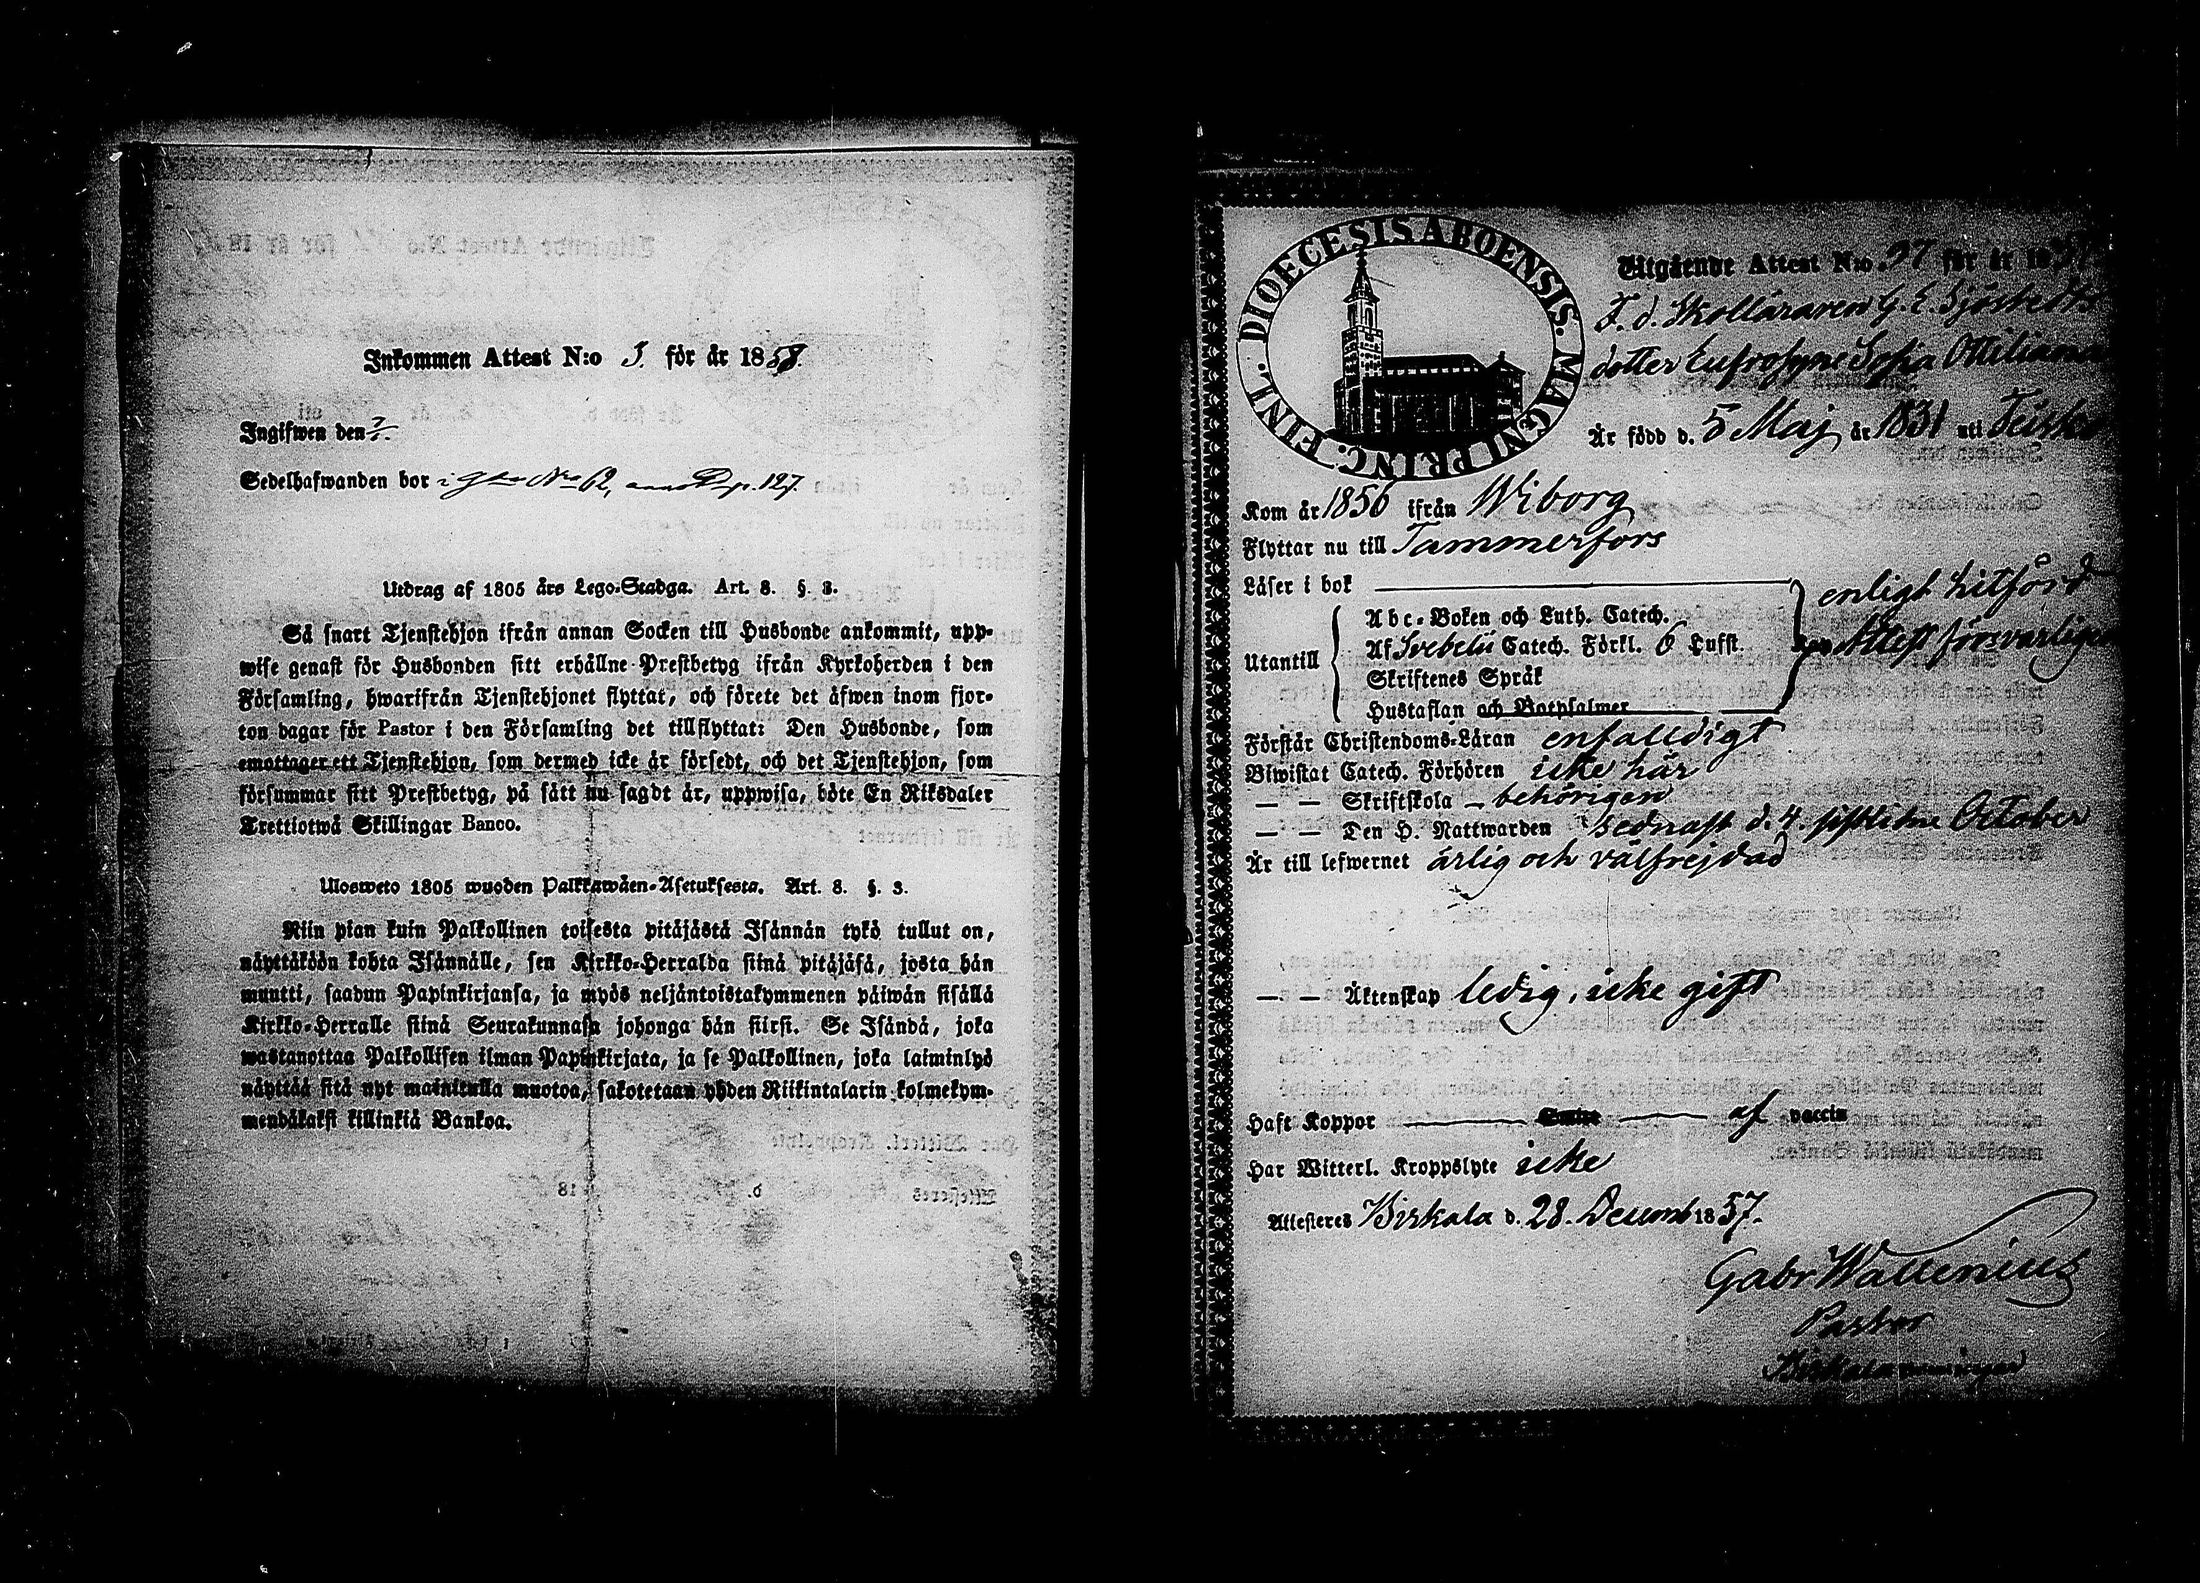 Inkommen Attest N:o 3. för år 1858.
Ingifwen den
Sedelhafwanden bor i No 62, p. 127.
Utdrag af 1805 års Lego-Stadga. Art. 8. §. 3.
Så snart Tjenstehjon ifrån annan Socken till Husbonde ankommit, upp-
wise genast för Husbonden sitt erhållne Prestbetyg ifrån Kyrkoherden i den
Församling, hwarifrån Tjenstehjonet flyttat, och förete det äfwen inom fjor-
ton dagar för Pastor i den Församling det tillflyttat: Den Husbonde, som
emottager ett Tjenstehjon, som dermed icke är försedt, och det Tjenstehjon, som
försummar sitt Prestbetyg, på sätt nu sagdt är, uppwisa, böte En Riksdaler
Trettiotwå Skillingar Banco.
Ulosweto 1805 wuoden Palkkawäen-Asetuksesta. Art. 8. §. 3.
Niin pian kuin Palkollinen toisesta pitäjästä Isännän tykö tullut on,
näyttäköön kohta Isännälle, sen Kirkko-Herralda siinä pitäjäsä, josta hän
muutti, saadun Papinkirjansa, ja myös neljäntoistakymmenen päiwän sisällä
Kirkko-Herralle siinä Seurakunnasa johonga hän siirsi. Se Isändä, joka
wastanottaa Palkollisen ilman Papinkirjata, ja se Palkollinen, joka laiminlyö
näyttää sitä nyt mainitulla muotoa, sakotetaan yhden Riikintalarin kolmekym-
mendäkaksi killinkiä Bankoa.
DIOECESIS ABOENSIS. MAGNI PRINC. FINL.
Utgående Attest N:o 97 för år 1857
F. d. Skolläraren G. E. Sjöstedts
dotter Eufrosyne Sofia Ottiliana
Är född d. 5 Maj år 1831 uti Teisko
Kom år 1856 ifrån Wiborg
Flyttar nu till Tammerfors
Läser i bok
enligt hitförd
Utantill
Abc-Boken och Luth. Catech.
Af Svebelii Catech. Förkl. 6 Lufst.
Attest försvarligen
Skriftenes Språk
Hustaflan och Botpsalmer
Förstår Christendoms-Läran enfalldigt
Biwistat Catech. Förhören icke här
— — Skriftskola behörigen
— — Den H. Nattwarden sednast d. 4. sistlidne October
Är till lefwernet ärlig och välfrejdad
— — Äktenskap ledig, icke gift
Haft Koppor af vaccin
Har Witterl. Kroppslyte icke
Attesteres Birkala d. 28. Decemb 1857.
Gabr Wallenius
Pastor